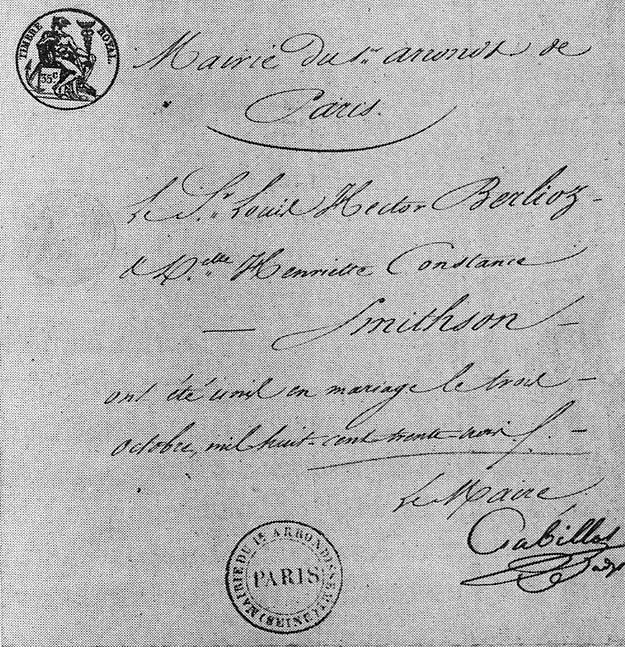 TIMBRE ROYAL.
35c
Mairie du 1er arrondt de
Paris.
Le Sr. Louis Hector Berlioz -
& Melle Henriette Constance
— Smithson —
ont été unis en mariage le trois —
octobre, mil huit-cent trente trois f. -
Le Maire
MAIRIE DU 1e ARRONDISSEMT (SEINE)
PARIS